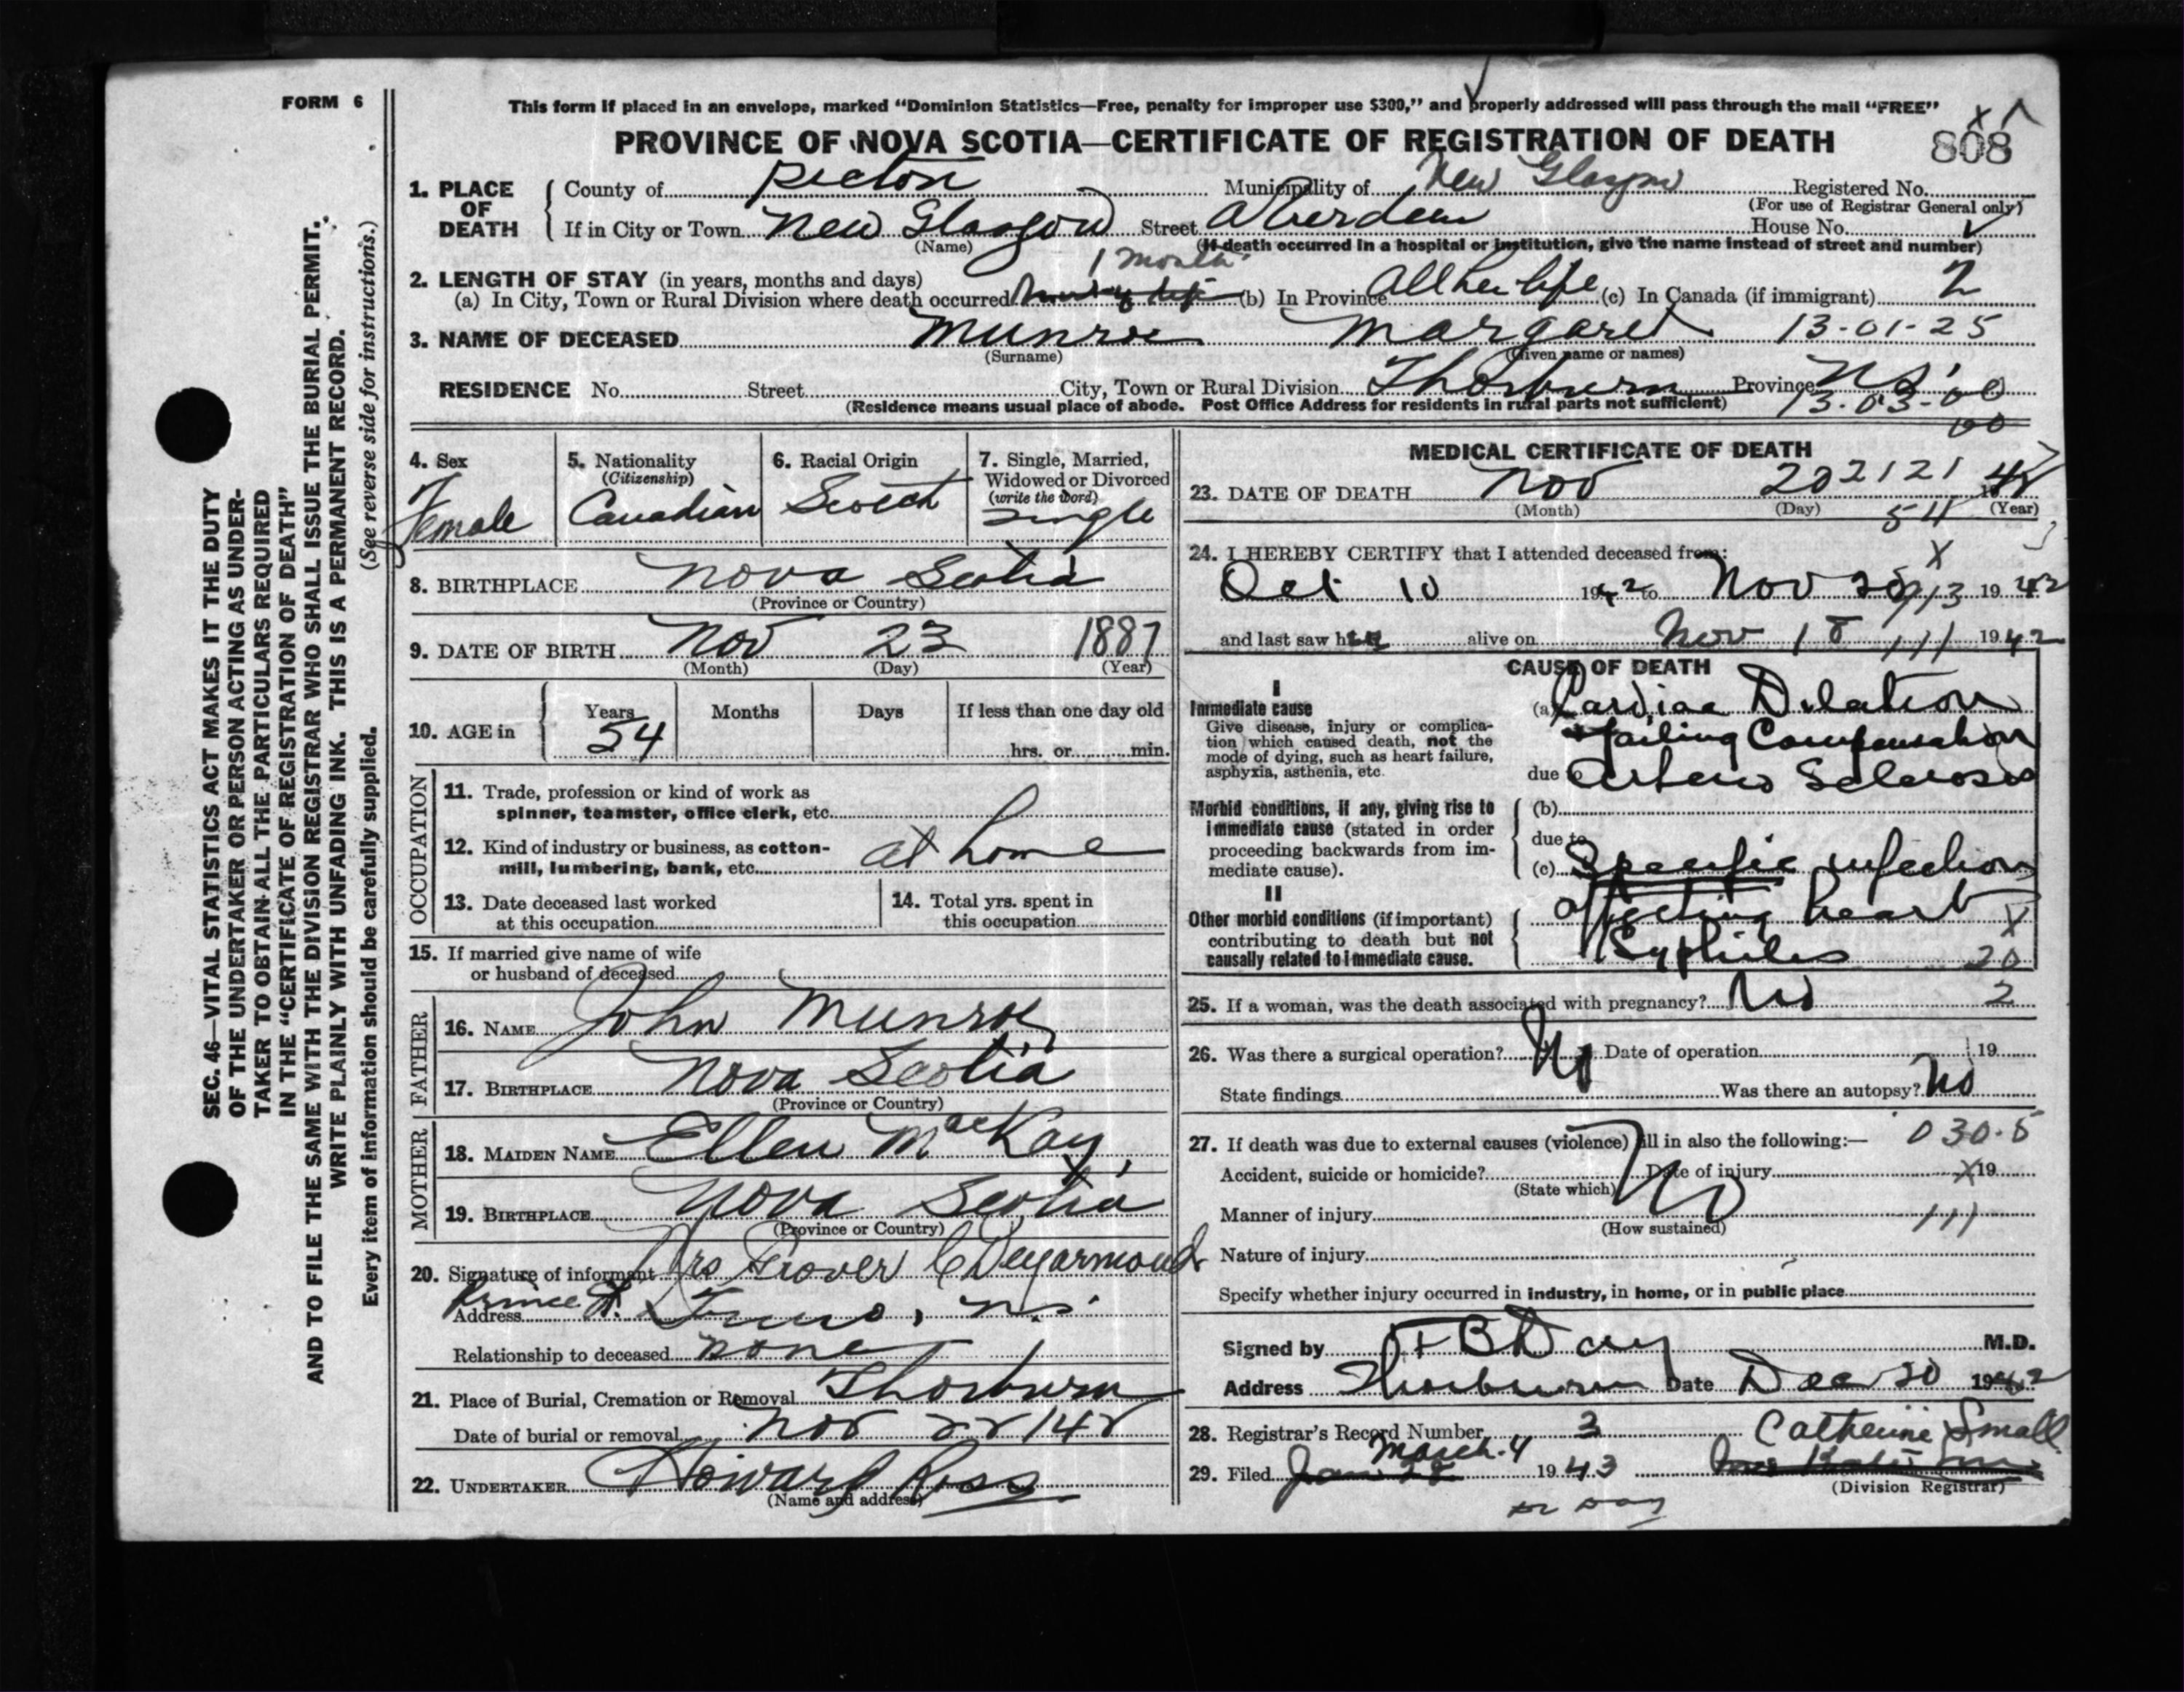 FORM 6
This form if placed in an envelope, marked “Dominion Statistics—Free, penalty for improper use $300,” and properly addressed will pass through the mail “FREE”
PROVINCE OF NOVA SCOTIA—CERTIFICATE OF REGISTRATION OF DEATH
808
1. PLACE OF DEATH
County of Pictou Municipality of New Glasgow Registered No.
(For use of Registrar General only)
If in City or Town New Glasgow Street Aberdeen House No.
(Name) (If death occurred in a hospital or institution, give the name instead of street and number)
2. LENGTH OF STAY (in years, months and days) 1 month
(a) In City, Town or Rural Division where death occurred (b) In Province All her life (c) In Canada (if immigrant) 2
3. NAME OF DECEASED Munroe Margaret 13-01-25
(Surname) (Given name or names)
RESIDENCE No. Street City, Town or Rural Division Thorburn Province N.S.
(Residence means usual place of abode. Post Office Address for residents in rural parts not sufficient) 13-03-00
00
4. Sex Female
5. Nationality (Citizenship) Canadian
6. Racial Origin Scotch
7. Single, Married, Widowed or Divorced (write the word) Single
8. BIRTHPLACE Nova Scotia
(Province or Country)
9. DATE OF BIRTH Nov 23 1887
(Month) (Day) (Year)
10. AGE in Years Months Days If less than one day old
54 hrs. or min.
OCCUPATION
11. Trade, profession or kind of work as spinner, teamster, office clerk, etc.
12. Kind of industry or business, as cotton-mill, lumbering, bank, etc. at home
13. Date deceased last worked at this occupation
14. Total yrs. spent in this occupation
15. If married give name of wife or husband of deceased
FATHER
16. NAME John Munroe
17. BIRTHPLACE Nova Scotia
(Province or Country)
MOTHER
18. MAIDEN NAME Ellen MacKay
19. BIRTHPLACE Nova Scotia
(Province or Country)
20. Signature of informant Mrs Grover C Degarmond
Address Prince St. Truro, N.S.
Relationship to deceased none
21. Place of Burial, Cremation or Removal Thorburn
Date of burial or removal Nov 22 / 42
22. UNDERTAKER Howard Ross
(Name and address)
MEDICAL CERTIFICATE OF DEATH
23. DATE OF DEATH Nov 20 2121 42
(Month) (Day) 54 (Year)
24. I HEREBY CERTIFY that I attended deceased from:
X
Oct 10 1942 to Nov 20 1942
and last saw her alive on Nov 18 111 1942
CAUSE OF DEATH
I
Immediate cause
Give disease, injury or complication which caused death, not the mode of dying, such as heart failure, asphyxia, asthenia, etc.
(a) Cardiac Dilation
Failing Compensation
due to Arterio Sclerosis
Morbid conditions, if any, giving rise to immediate cause (stated in order proceeding backwards from immediate cause).
(b)
due to
(c) Specific infection
II
Other morbid conditions (if important) contributing to death but not causally related to immediate cause.
affecting heart X
Syphiles 20
25. If a woman, was the death associated with pregnancy? No 2
26. Was there a surgical operation? No Date of operation 19
State findings Was there an autopsy? No
27. If death was due to external causes (violence) fill in also the following:— 030.5
Accident, suicide or homicide? Date of injury X 19
(State which) No
Manner of injury 111
(How sustained)
Nature of injury
Specify whether injury occurred in industry, in home, or in public place
Signed by Day M.D.
Address Thorburn Date Dec 20 1942
28. Registrar's Record Number 3 Catherine Small
29. Filed March 4 1943
(Division Registrar)
Dr Day
SEC. 46—VITAL STATISTICS ACT MAKES IT THE DUTY
OF THE UNDERTAKER OR PERSON ACTING AS UNDER-
TAKER TO OBTAIN ALL THE PARTICULARS REQUIRED
IN THE “CERTIFICATE OF REGISTRATION OF DEATH”
AND TO FILE THE SAME WITH THE DIVISION REGISTRAR WHO SHALL ISSUE THE BURIAL PERMIT.
WRITE PLAINLY WITH UNFADING INK. THIS IS A PERMANENT RECORD.
(See reverse side for instructions.)
Every item of information should be carefully supplied.